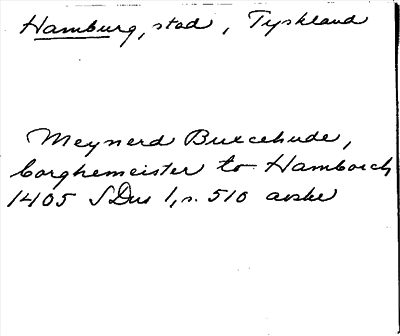 Hamburg, stad, Tyskland
Meynerd Buxcehude,
borghemeister to Hamborch
1405 SDns 1, s. 510 avskr